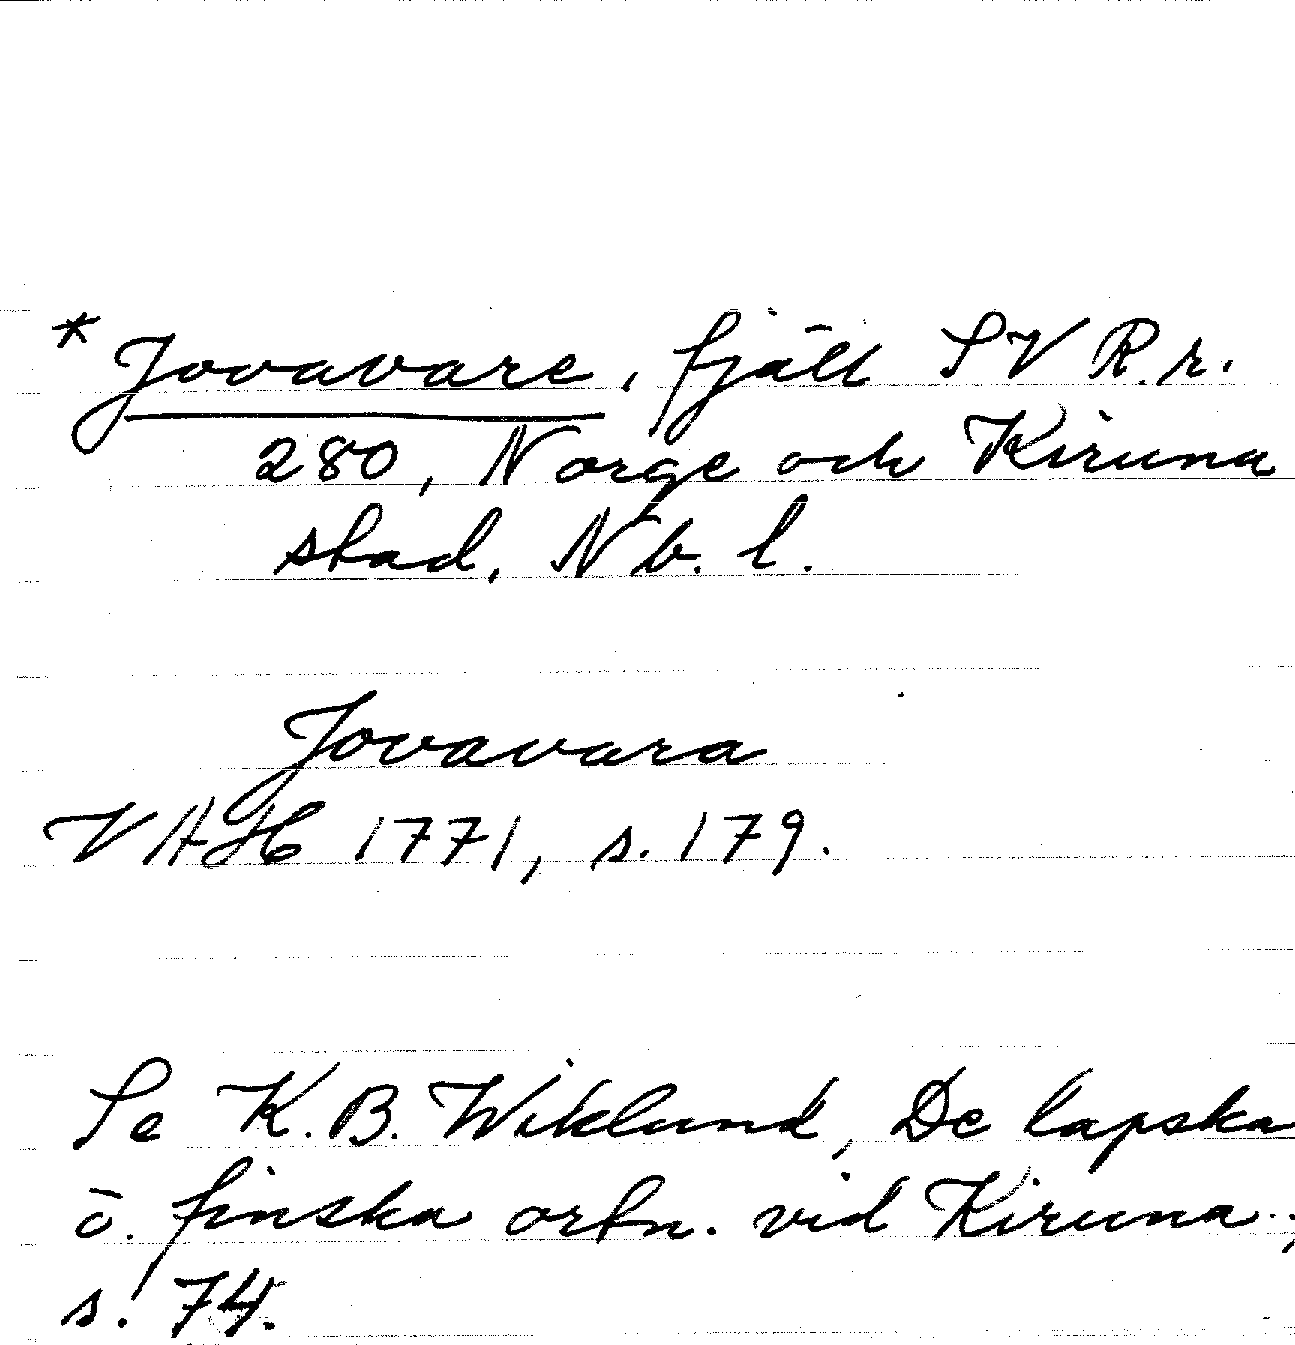 * Jovavare, fjäll SV R.r.
280, Norge och Kiruna
stad, Nb. l.
Jovavara
VAH 1771, s. 179.
Se K.B. Wiklund, De lapska
o. finska ortn. vid Kiruna..,
s. 74.